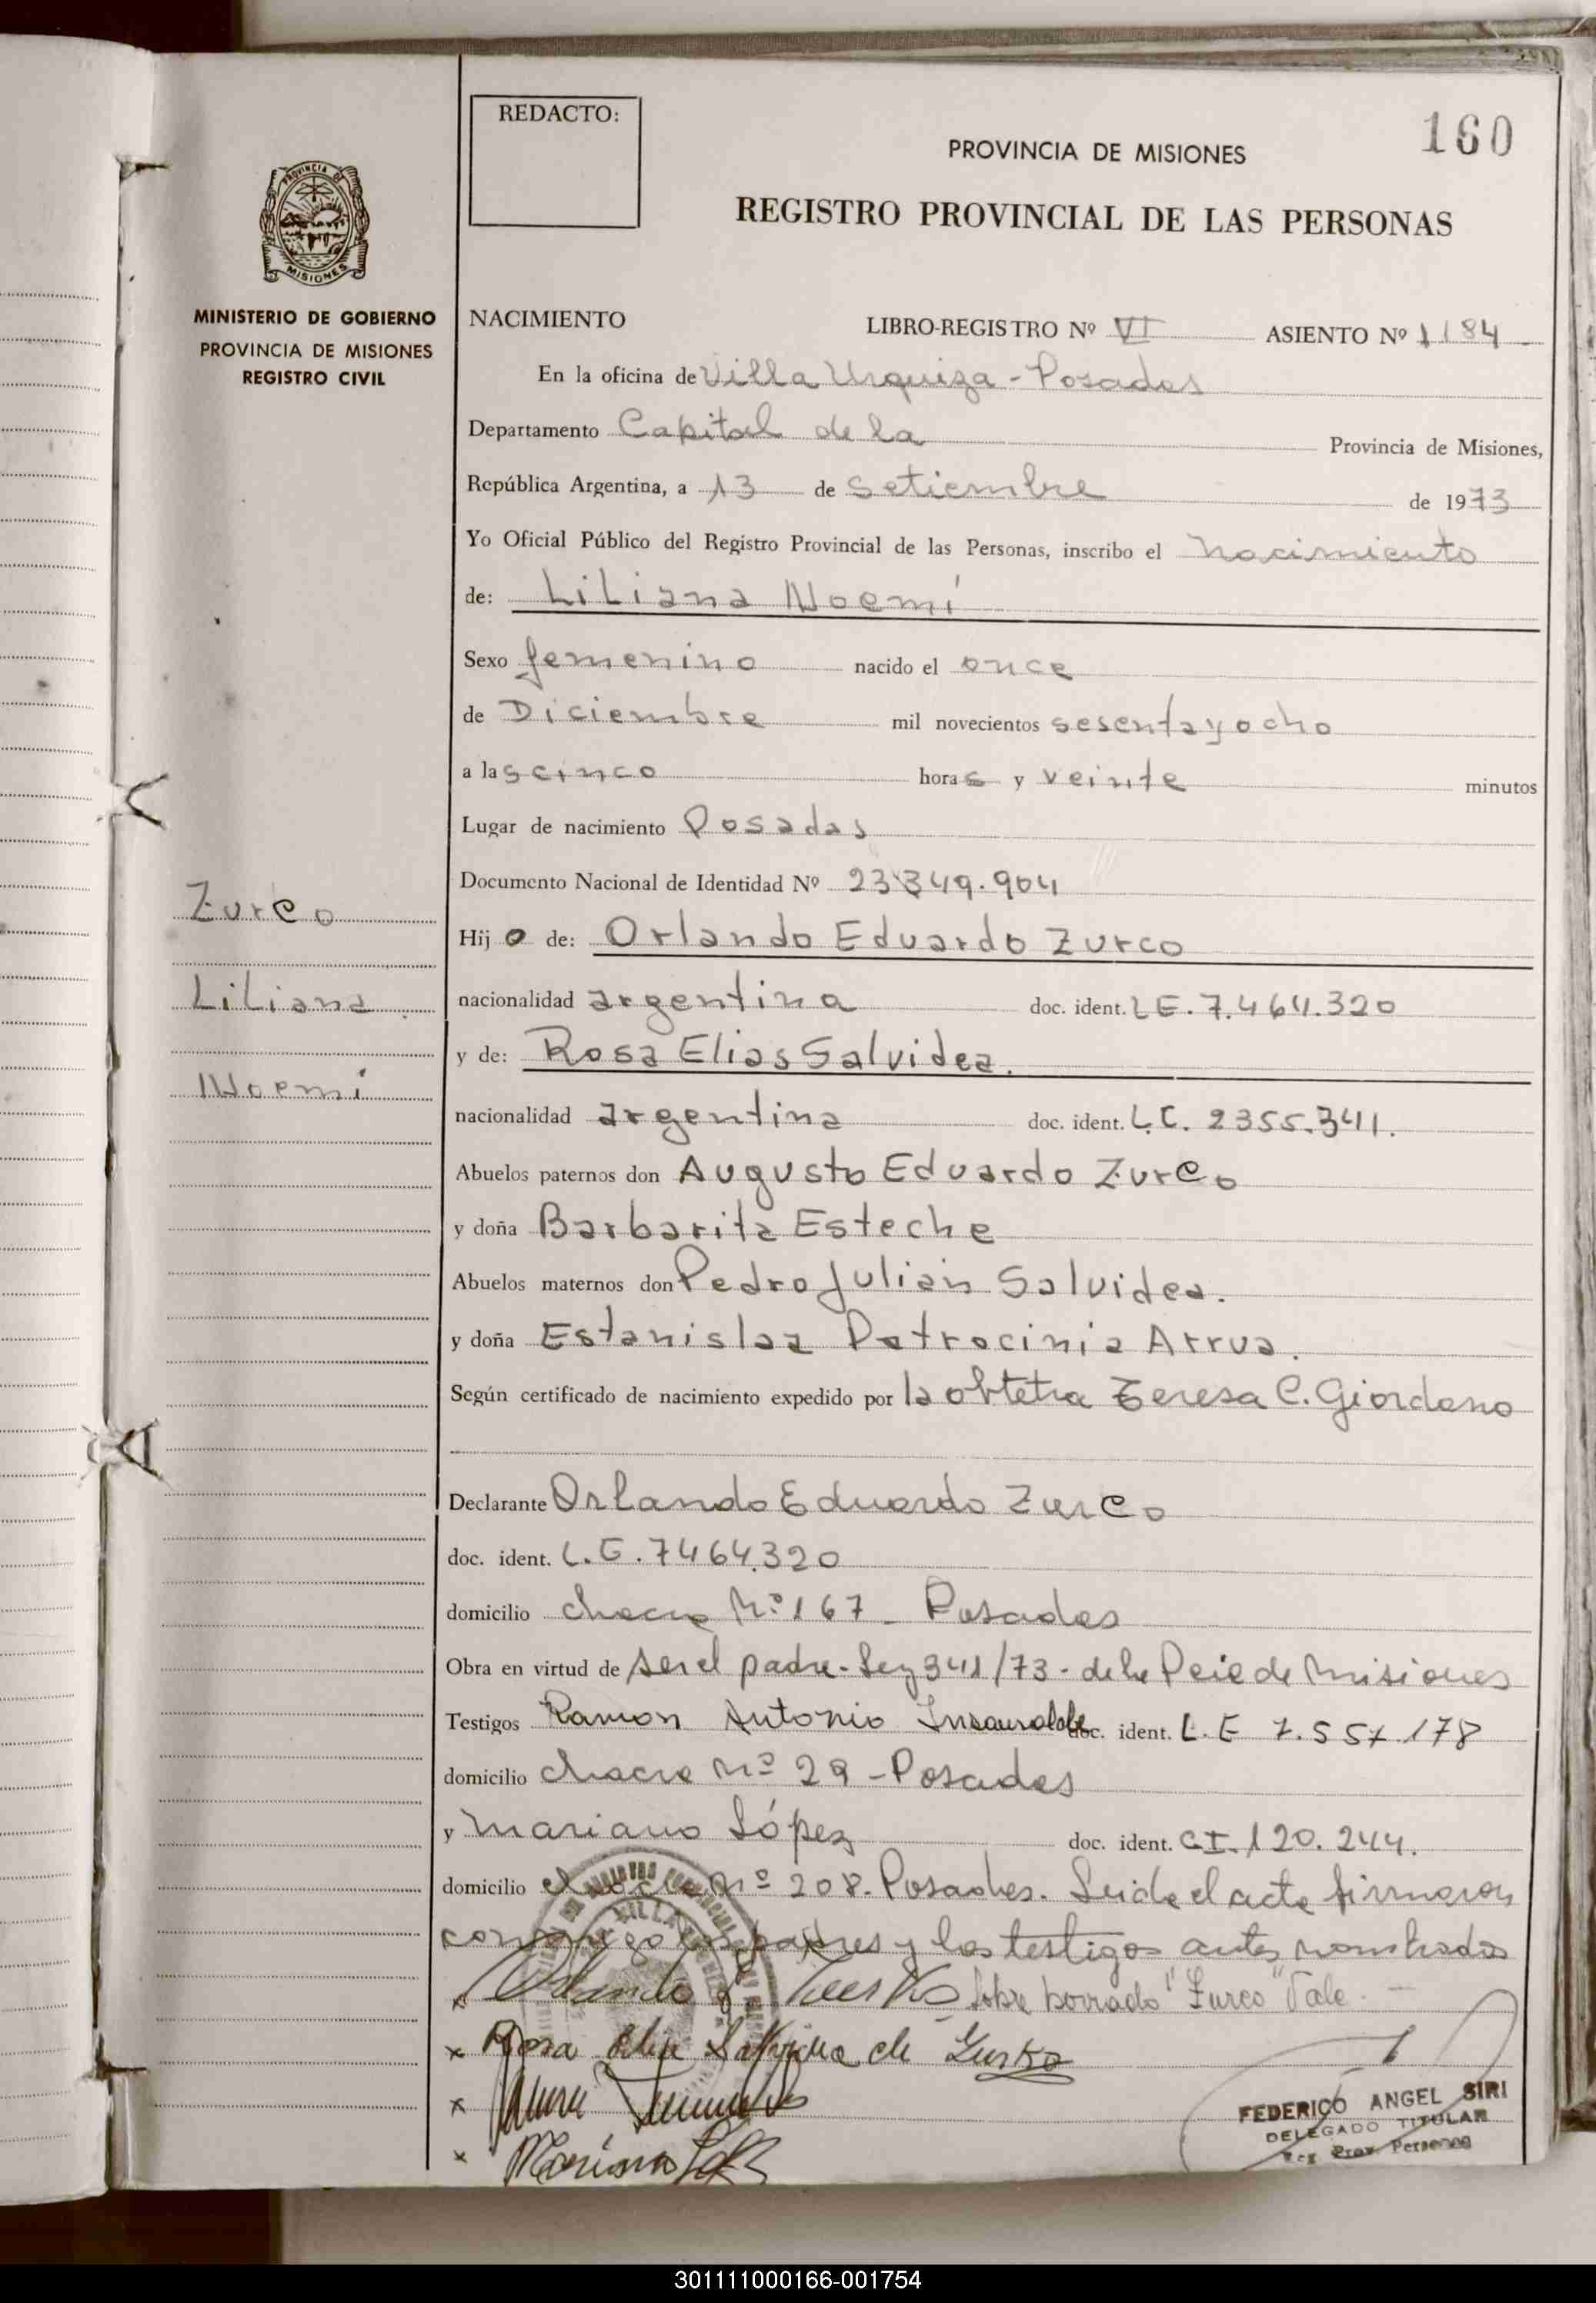 REDACTO:
PROVINCIA DE MISIONES
160
REGISTRO PROVINCIAL DE LAS PERSONAS
PROVINCIA DE
MISIONES
MINISTERIO DE GOBIERNO
PROVINCIA DE MISIONES
REGISTRO CIVIL
NACIMIENTO LIBRO-REGISTRO Nº VI ASIENTO Nº 1184
En la oficina de Villa Urquiza - Posadas
Departamento Capital de la Provincia de Misiones,
República Argentina, a 13 de Setiembre de 1973
Yo Oficial Público del Registro Provincial de las Personas, inscribo el nacimiento
de: Liliana Noemí
Sexo femenino nacido el once
de Diciembre mil novecientos sesentayocho
a las cinco horas y veinte minutos
Lugar de nacimiento Posadas
Documento Nacional de Identidad Nº 23.349.904
Zurco
Hijo de: Orlando Eduardo Zurco
Liliana
nacionalidad argentina doc. ident. L E. 7.464.320
y de: Rosa Elias Salvidea.
Noemí
nacionalidad argentina doc. ident. L.C. 2355.341.
Abuelos paternos don Augusto Eduardo Zurco
y doña Barbarita Esteche
Abuelos maternos don Pedro Julian Salvidea.
y doña Estanislaa Patrocinia Arrua.
Según certificado de nacimiento expedido por la obtetra Teresa C. Giordano
Declarante Orlando Eduardo Zurco
doc. ident. L.E. 7464.320
domicilio chacra Nº 167 - Posadas
Obra en virtud de ser el padre - Ley 341/73 - de la Pcia de Misiones
Testigos Ramon Antonio Insaurralde doc. ident. L. E 7.557.178
domicilio chacra Nº 29 - Posadas
y Mariano López doc. ident. C.I. 120.244.
domicilio chacra Nº 208. Posadas. Leida el acta firmaron
conmigo los padres y los testigos antes nombrados
Orlando E. Sobre borrado "Zurco" Vale. -
x Rosa de Zurko
x
x Mariano
FEDERICO ANGEL SIRI
DELEGADO TITULAR
Reg Prov Personas
301111000166-001754